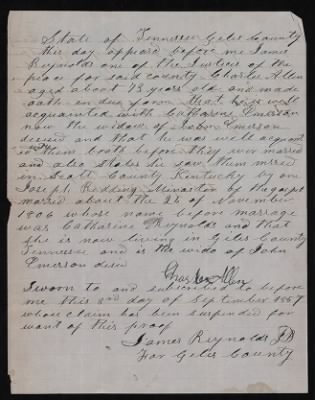 State of Tennessee Giles County
this day appeard before me James
Reynolds one of the Justice of the
peace for said county Charles Allen
aged about 73 years old and made
oath in due form that he is well
acquainted with Catharine Emerson
now the widow of John Emerson
desced and that he was well acquan
with them both before they was married
and also states he saw them mrred
in Scott County Kentucky by one
Joseph Redding Minaster of the gospel
married about the 25 of November
1806 whose name before marriage
was Catharine Reynolds and that
she is now living in Giles County
Tennesse and is the wido of John
Emerson desced
Charles Allen
Sworn to and subscribed to before
me this 2nd day of September 1857
whose claim has been suspended for
want of this proof
James Reynolds JP
For Giles County